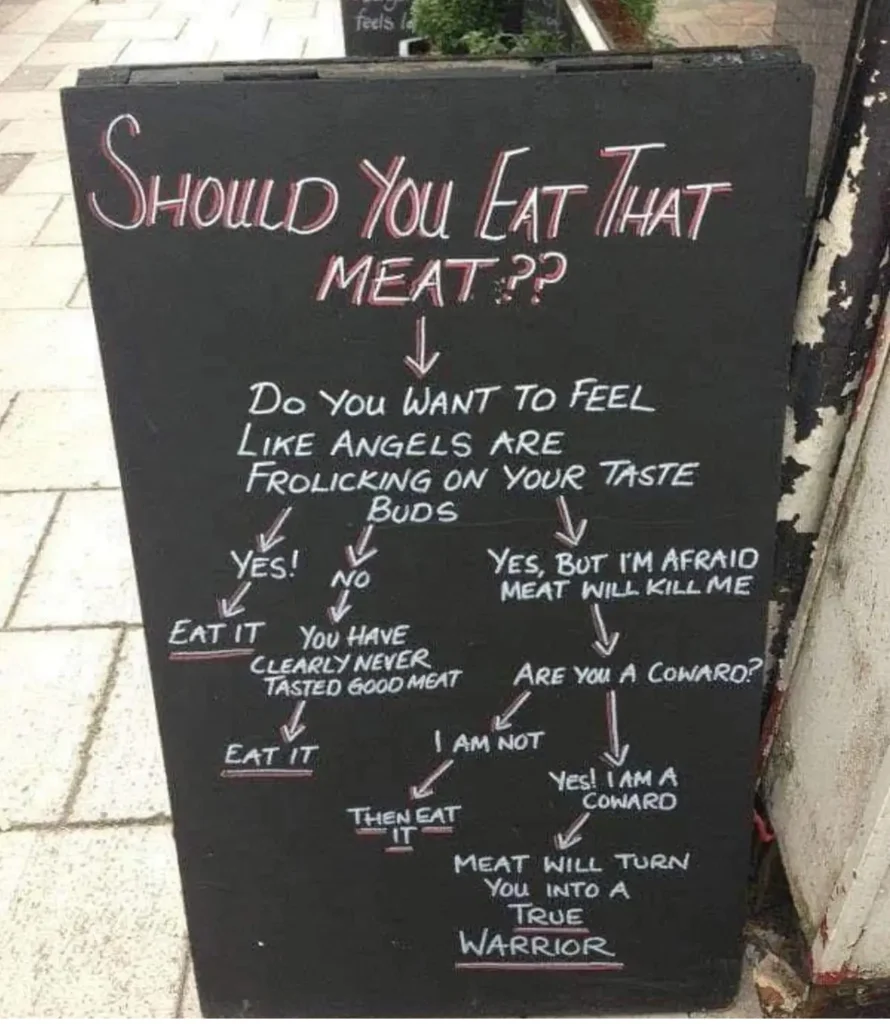 feels
SHOULD YOU EAT THAT
MEAT??
DO YOU WANT TO FEEL
LIKE ANGELS ARE
FROLICKING ON YOUR TASTE
BUDS
YES!
EAT IT
NO
YOU HAVE
CLEARLY NEVER
TASTED GOOD MEAT
EAT IT
YES, BUT I'M AFRAID
MEAT WILL KILL ME
ARE YOU A COWARD?
I AM NOT
THEN EAT
IT
YES! I AM A
COWARD
MEAT WILL TURN
YOU INTO A
TRUE
WARRIOR